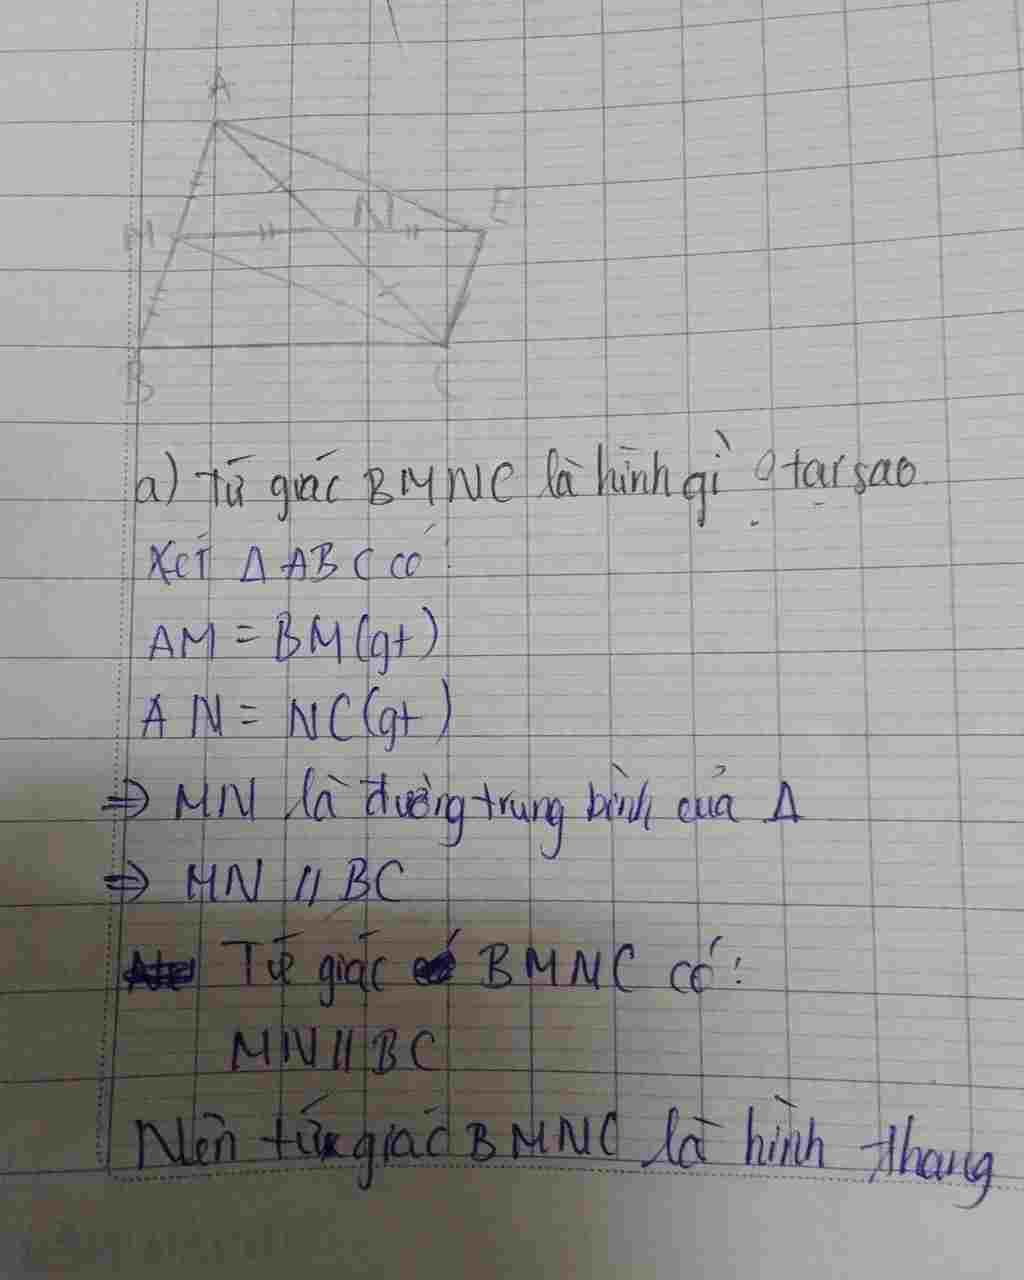 A
M
N
E
B
C
a) Tứ giác BMNC là hình gì? tại sao.
Xét Δ ABC có:
AM = BM (gt)
AN = NC (gt)
⇒ MN là đường trung bình của Δ
⇒ MN // BC
Tứ giác BMNC có:
MN // BC
Nên tứ giác BMNC là hình thang